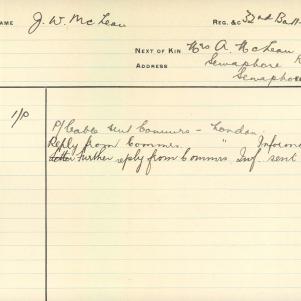 NAME J. W. McLean REG. &C 32nd Batt
NEXT OF KIN Mrs A. McLean
ADDRESS Semaphore R
Semaphore
1/0
P/Cable sent Commrs - London.
Reply from Commrs. " Inform
Letter Further reply from Commrs. Inf. sent